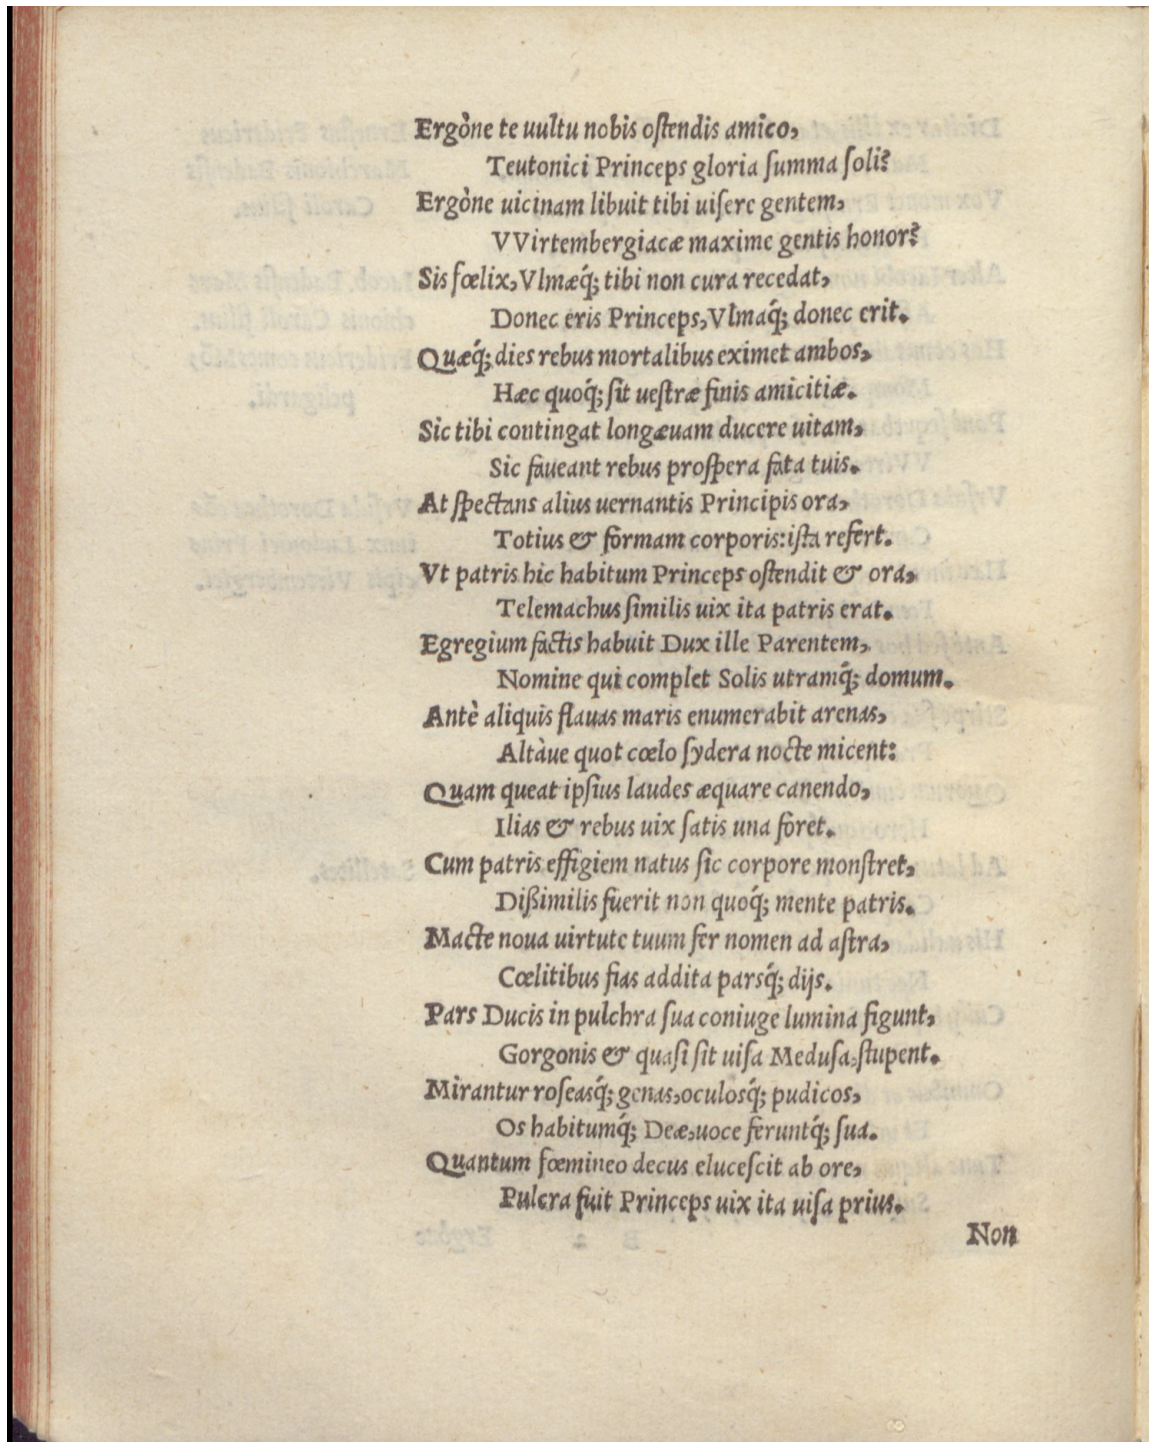 Ergòne te uultu nobis oſtendis amico,
Teutonici Princeps gloria ſumma ſoli?
Ergòne uicinam libuit tibi uiſere gentem,
VVirtembergiacæ maxime gentis honor?
Sis fœlix, Vlmæq́; tibi non cura recedat,
Donec eris Princeps, Vlmaq́; donec erit.
Quæq́; dies rebus mortalibus eximet ambos,
Hæc quoq́; ſit ueſtræ finis amicitiæ.
Sic tibi contingat longæuam ducere uitam,
Sic faueant rebus proſpera fata tuis.
At ſpectans alius uernantis Principis ora,
Totius & formam corporis: iſta refert.
Vt patris hic habitum Princeps oſtendit & ora,
Telemachus ſimilis uix ita patris erat.
Egregium factis habuit Dux ille Parentem,
Nomine qui complet Solis utramq́; domum.
Antè aliquis flauas maris enumerabit arenas,
Altàue quot cœlo ſydera nocte micent:
Quam queat ipſius laudes æquare canendo,
Ilias & rebus uix ſatis una foret.
Cum patris effigiem natus ſic corpore monſtret,
Dißimilis fuerit non quoq́; mente patris.
Macte noua uirtute tuum fer nomen ad aſtra,
Cœlitibus fias addita parsq́; dijs.
Pars Ducis in pulchra ſua coniuge lumina figunt,
Gorgonis & quaſi ſit uiſa Meduſa, ſtupent.
Mirantur roſeasq́; genas, oculosq́; pudicos,
Os habitumq́; Deæ, uoce feruntq́; ſua.
Quantum fœmineo decus eluceſcit ab ore,
Pulcra fuit Princeps uix ita uiſa prius.
Non